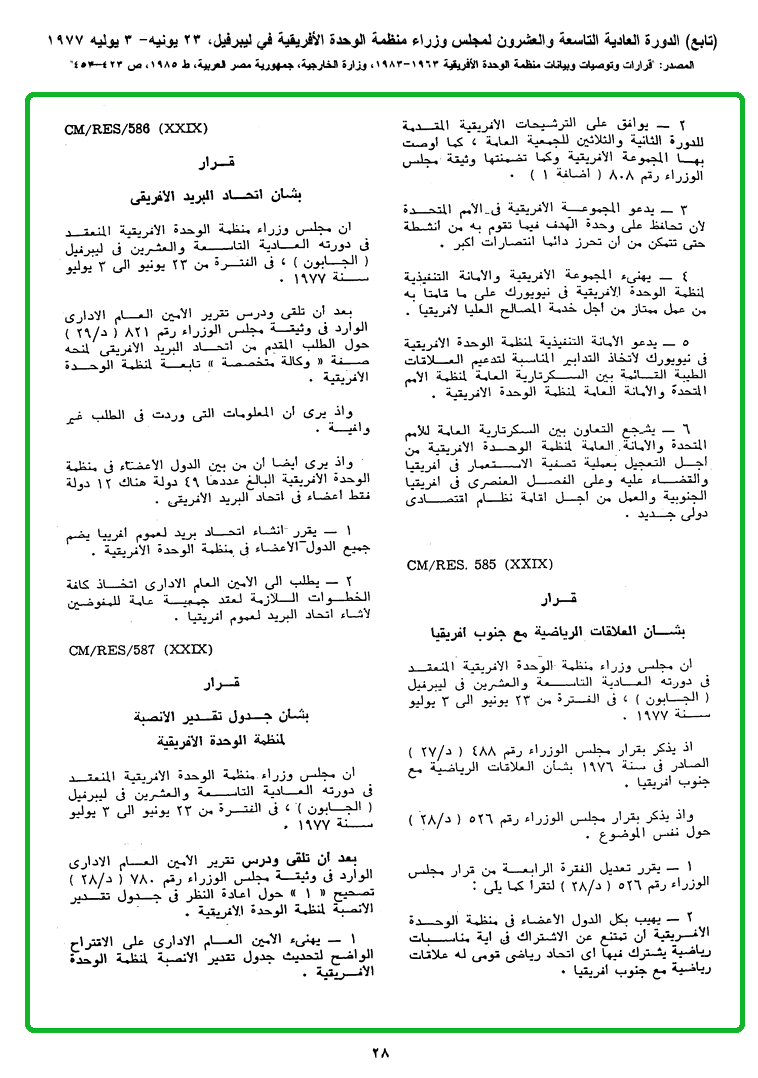 (تابع) الدورة العادية التاسعة والعشرون لمجلس وزراء منظمة الوحدة الأفريقية في ليبرفيل، ٢٣ يونيه- ٣ يوليه ١٩٧٧
المصدر: "قرارات وتوصيات وبيانات منظمة الوحدة الأفريقية ١٩٦٣-١٩٨٣، وزارة الخارجية، جمهورية مصر العربية، ط ١٩٨٥، ص ٤٢٣-٤٥٣"
٢ — يوافق على الترشيحات الأفريقية المقدمة
للدورة الثانية والثلاثين للجمعية العامة ، كما أوصت
بها المجموعة الأفريقية وكما تضمنتها وثيقة مجلس
الوزراء رقم ٨٠٨ ( اضافة ١ ) .
٣ — يدعو المجموعة الأفريقية فى الأمم المتحدة
لأن تحافظ على وحدة الهدف فيما تقوم به من أنشطة
حتى تتمكن من أن تحرز دائما انتصارات أكبر .
٤ — يهنىء المجموعة الأفريقية والأمانة التنفيذية
لمنظمة الوحدة الأفريقية فى نيويورك على ما قامتا به
من عمل ممتاز من أجل خدمة المصالح العليا لأفريقيا .
٥ — يدعو الأمانة التنفيذية لمنظمة الوحدة الأفريقية
فى نيويورك لأتخاذ التدابير المناسبة لتدعيم العلاقات
الطيبة القائمة بين السكرتارية العامة لمنظمة الأمم
المتحدة والأمانة العامة لمنظمة الوحدة الأفريقية .
٦ — يشجع التعاون بين السكرتارية العامة للأمم
المتحدة والأمانة العامة لمنظمة الوحدة الأفريقية من
أجل التعجيل بعملية تصفية الاستعمار فى أفريقيا
والقضاء عليه وعلى الفصل العنصرى فى أفريقيا
الجنوبية والعمل من أجل اقامة نظام اقتصادى
دولى جديد .
CM/RES. 585 (XXIX)
قرار
بشأن العلاقات الرياضية مع جنوب أفريقيا
ان مجلس وزراء منظمة الوحدة الأفريقية المنعقد
فى دورته العادية التاسعة والعشرين فى ليبرفيل
( الجابون ) ، فى الفترة من ٢٣ يونيو الى ٣ يوليو
سنة ١٩٧٧ .
اذ يذكر بقرار مجلس الوزراء رقم ٤٨٨ ( د/٢٧ )
الصادر فى سنة ١٩٧٦ بشأن العلاقات الرياضية مع
جنوب أفريقيا .
واذ يذكر بقرار مجلس الوزراء رقم ٥٢٦ ( د/٢٨ )
حول نفس الموضوع .
١ — يقرر تعديل الفقرة الرابعة من قرار مجلس
الوزراء رقم ٥٢٦ ( د/٢٨ ) لتقرأ كما يلى :
٢ — يهيب بكل الدول الأعضاء فى منظمة الوحدة
الأفريقية أن تمتنع عن الاشتراك فى أية مناسبات
رياضية يشترك فيها أى اتحاد رياضى قومى له علاقات
رياضية مع جنوب أفريقيا .
CM/RES/586 (XXIX)
قرار
بشأن اتحاد البريد الأفريقى
ان مجلس وزراء منظمة الوحدة الأفريقية المنعقد
فى دورته العادية التاسعة والعشرين فى ليبرفيل
( الجابون ) ، فى الفترة من ٢٣ يونيو الى ٣ يوليو
سنة ١٩٧٧ .
بعد أن تلقى ودرس تقرير الأمين العام الادارى
الوارد فى وثيقة مجلس الوزراء رقم ٨٢١ ( د/٢٩ )
حول الطلب المقدم من اتحاد البريد الأفريقى لمنحه
صفة « وكالة متخصصة » تابعة لمنظمة الوحدة
الأفريقية .
واذ يرى أن المعلومات التى وردت فى الطلب غير
وافية .
واذ يرى أيضا أن من بين الدول الأعضاء فى منظمة
الوحدة الأفريقية البالغ عددها ٤٩ دولة هناك ١٢ دولة
فقط أعضاء فى اتحاد البريد الأفريقى .
١ — يقرر انشاء اتحاد بريد لعموم أفريبا يضم
جميع الدول الأعضاء فى منظمة الوحدة الأفريقية .
٢ — يطلب الى الأمين العام الادارى اتخاذ كافة
الخطوات اللازمة لعقد جمعية عامة للمفوضين
لاثاء اتحاد البريد لعموم أفريقيا .
CM/RES/587 (XXIX)
قرار
بشأن جدول تقدير الأنصبة
لمنظمة الوحدة الأفريقية
ان مجلس وزراء منظمة الوحدة الأفريقية المنعقد
فى دورته العادية التاسعة والعشرين فى ليبرفيل
( الجابون ) ، فى الفترة من ٢٣ يونيو الى ٣ يوليو
سنة ١٩٧٧ .
بعد أن تلقى ودرس تقرير الأمين العام الادارى
الوارد فى وثيقة مجلس الوزراء رقم ٧٨٠ ( د/٢٨ )
تصحيح « ١ » حول اعادة النظر فى جدول تقدير
الأنصبة لمنظمة الوحدة الأفريقية .
١ — يهنىء الأمين العام الادارى على الاقتراح
الواضح لتحديث جدول تقدير الأنصبة لمنظمة الوحدة
الأفريقية .
٢٨